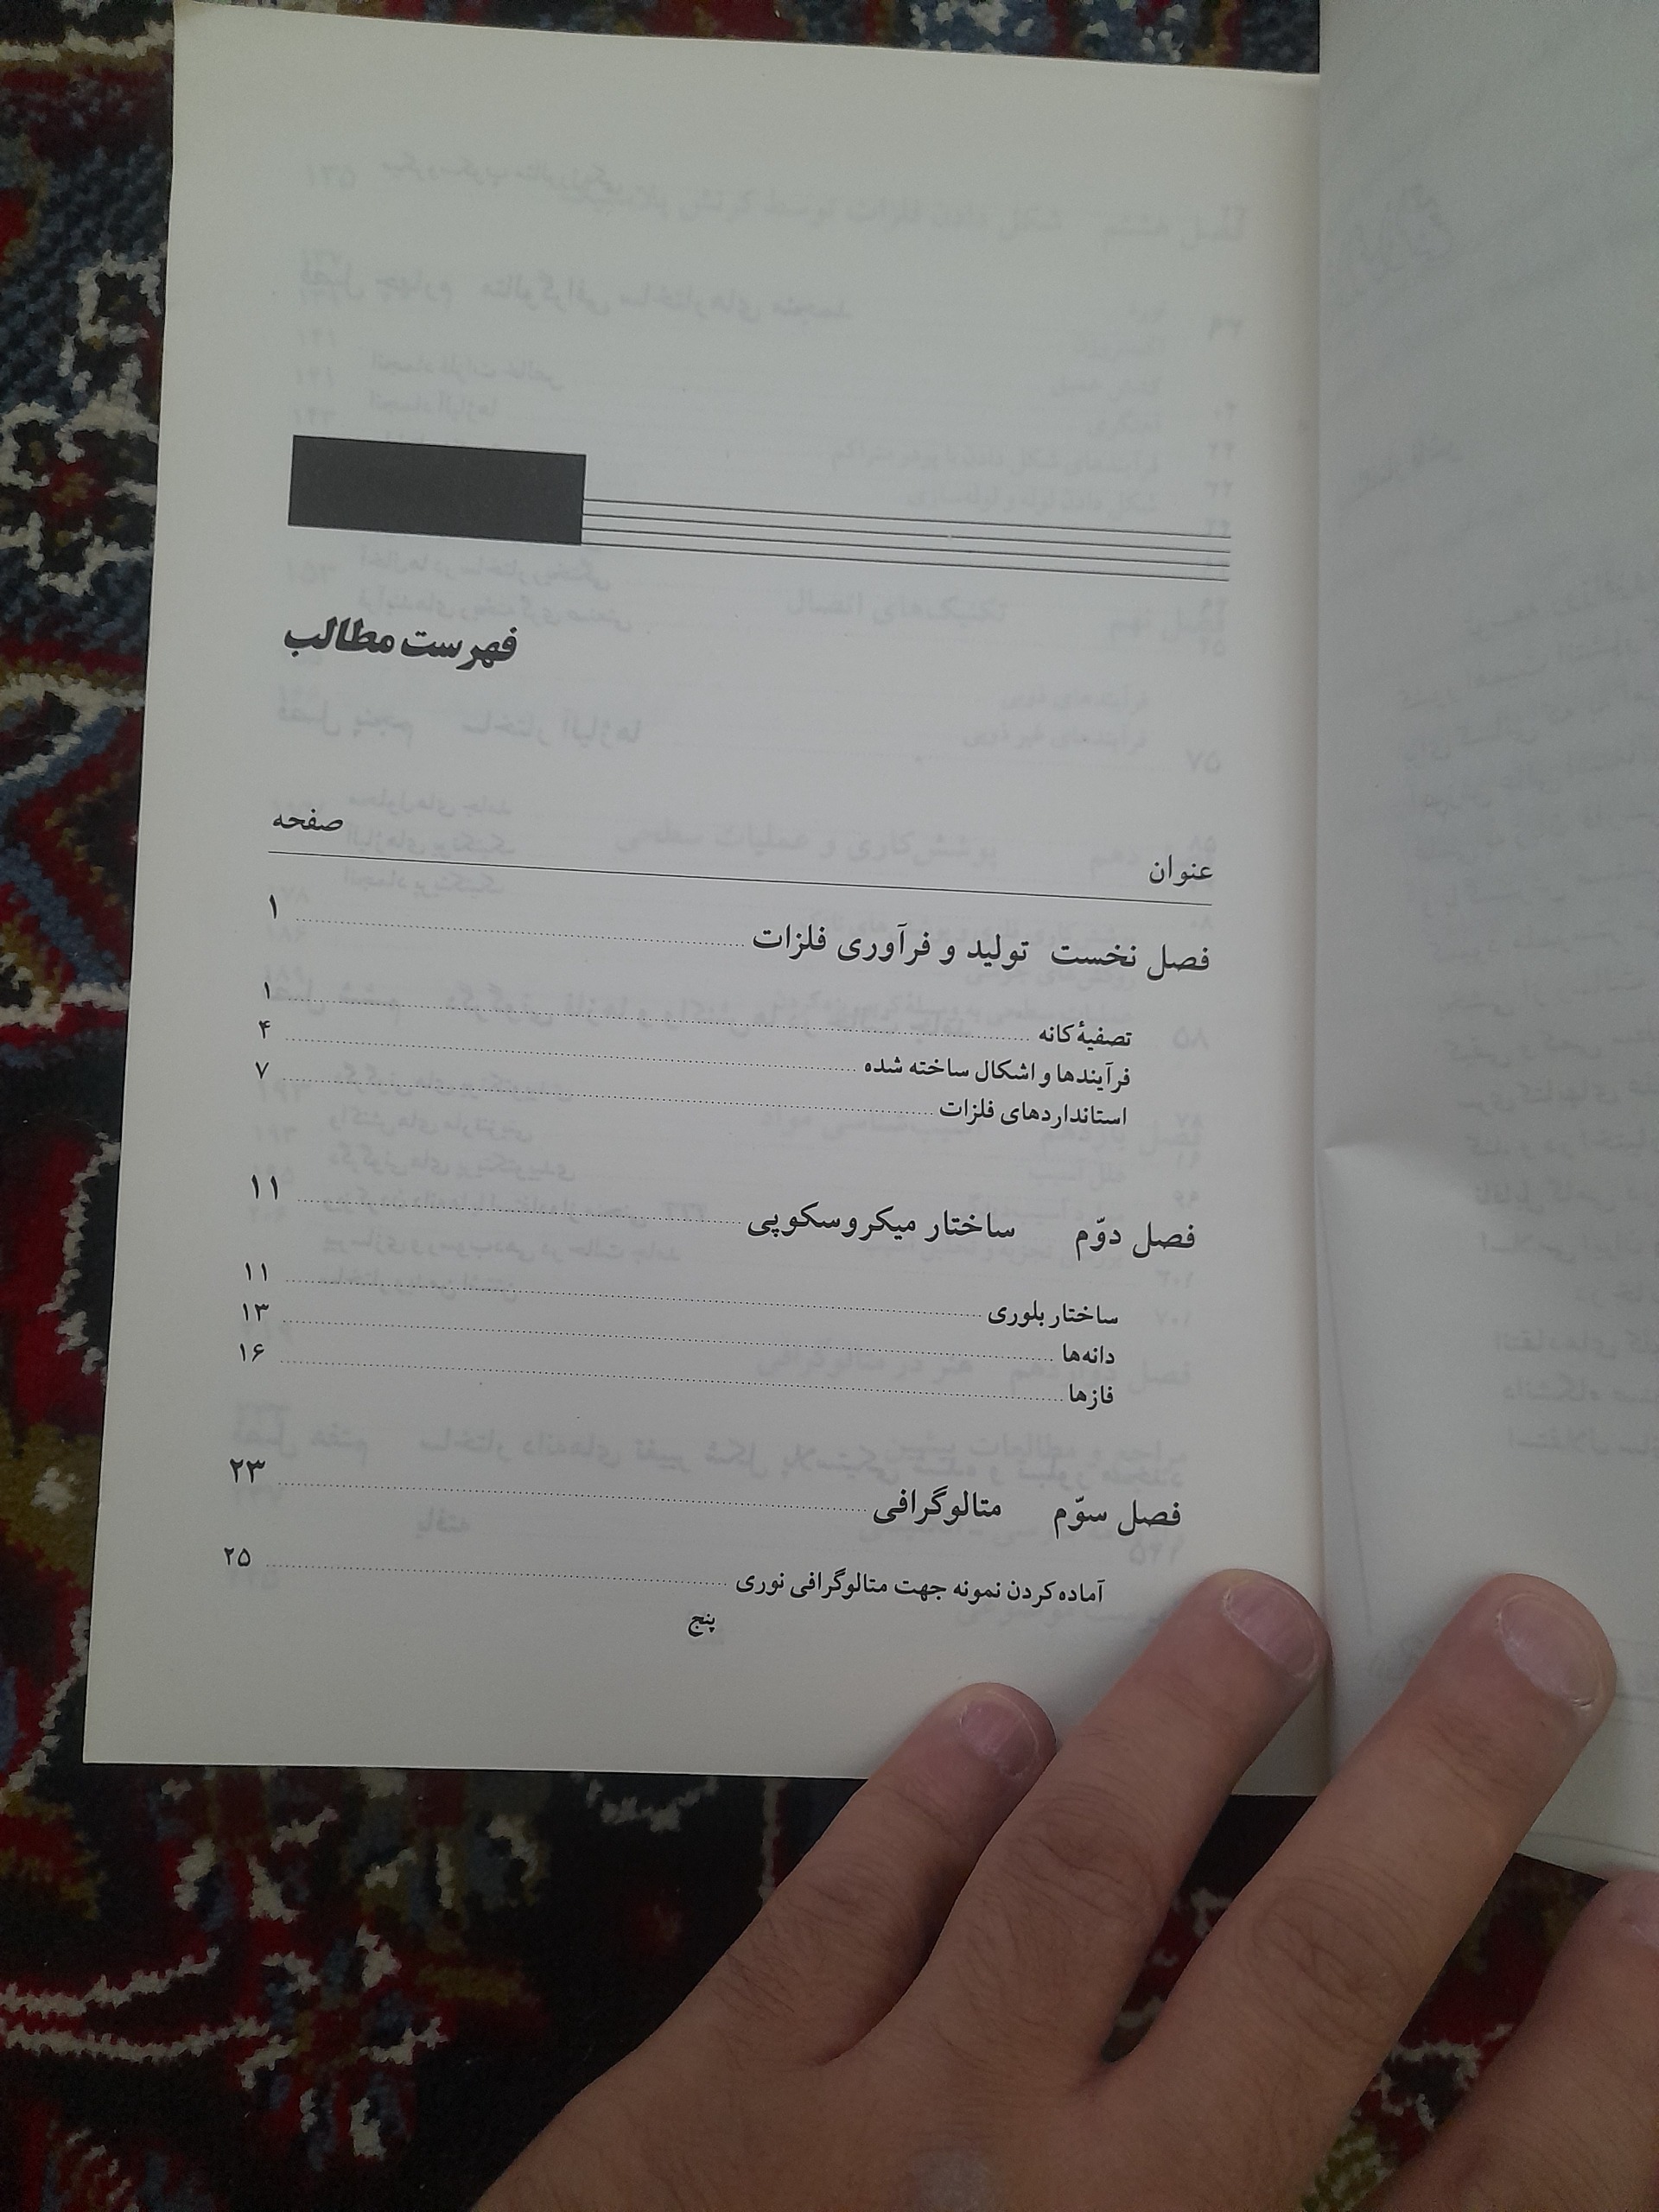 فهرست مطالب
عنوان صفحه
فصل نخست تولید و فرآوری فلزات ........ ۱
تصفیۀ کانه ........ ۱
فرآیندها و اشکال ساخته شده ........ ۴
استانداردهای فلزات ........ ۷
فصل دوّم ساختار میکروسکوپی ........ ۱۱
ساختار بلوری ........ ۱۱
دانه‌ها ........ ۱۳
فازها ........ ۱۶
فصل سوّم متالوگرافی ........ ۲۳
آماده کردن نمونه جهت متالوگرافی نوری ........ ۲۵
پنج